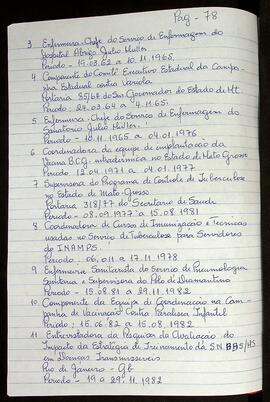 Pag - 78
3 Enfermeira-Chefe do Serviço de Enfermagem do
Hospital Abrigo Julio Muller
Periodo - 19.03.62 a 10.11.1965.
4 Componente do Comitê Executivo Estadual da Campa
nha Estadual contra Variola
Portaria 85/64 do Snr Governador do Estado de MT.
Periodo - 24.03.64 a 4.11.65.
5 Enfermeira-Chefe do Serviço de Enfermagem do
Sanatorio Julio Muller.
Periodo - 10.11.1965 a 04.01.1976
6 Coordenadora da equipe de implantação da
Vacina B.C.G. intradérmica no Estado de Mato Grosso
Periodo - 12.04.1971 a 04.01.1977
7 Supervisora do Programa de Controle de Tuberculose
no Estado de Mato Grosso
Portaria - 318/77 do Secretario de Saude
Periodo - 08.09.1977 a 15.08.1981
8 Coordenadora de Cursos de Imunização e Tecnicas
usadas no Serviço de Tuberculose para Servidores
do INAMPS.
Periodo - 06, 011 a 17.11.1978
9 Enfermeira Sanitarista do Serviço de Pneumologia
Sanitaria e Supervisora do Pólo de Diamantino
Periodo - 15.08.81 a 29.11.1982
10 Componente da Equipe de Coordenação na Cam-
panha de Vacinação Contra Paralisia Infantil
Periodo: 15.06.82 a 15.08.1982
11 Entrevistadora da Pesquisa da Avaliação do
Impacto da Estratégia de Treinamento da S.N.
em Doenças Transmissiveis
Rio de Janeiro - Gb
Periodo - 19 a 29.11.1982